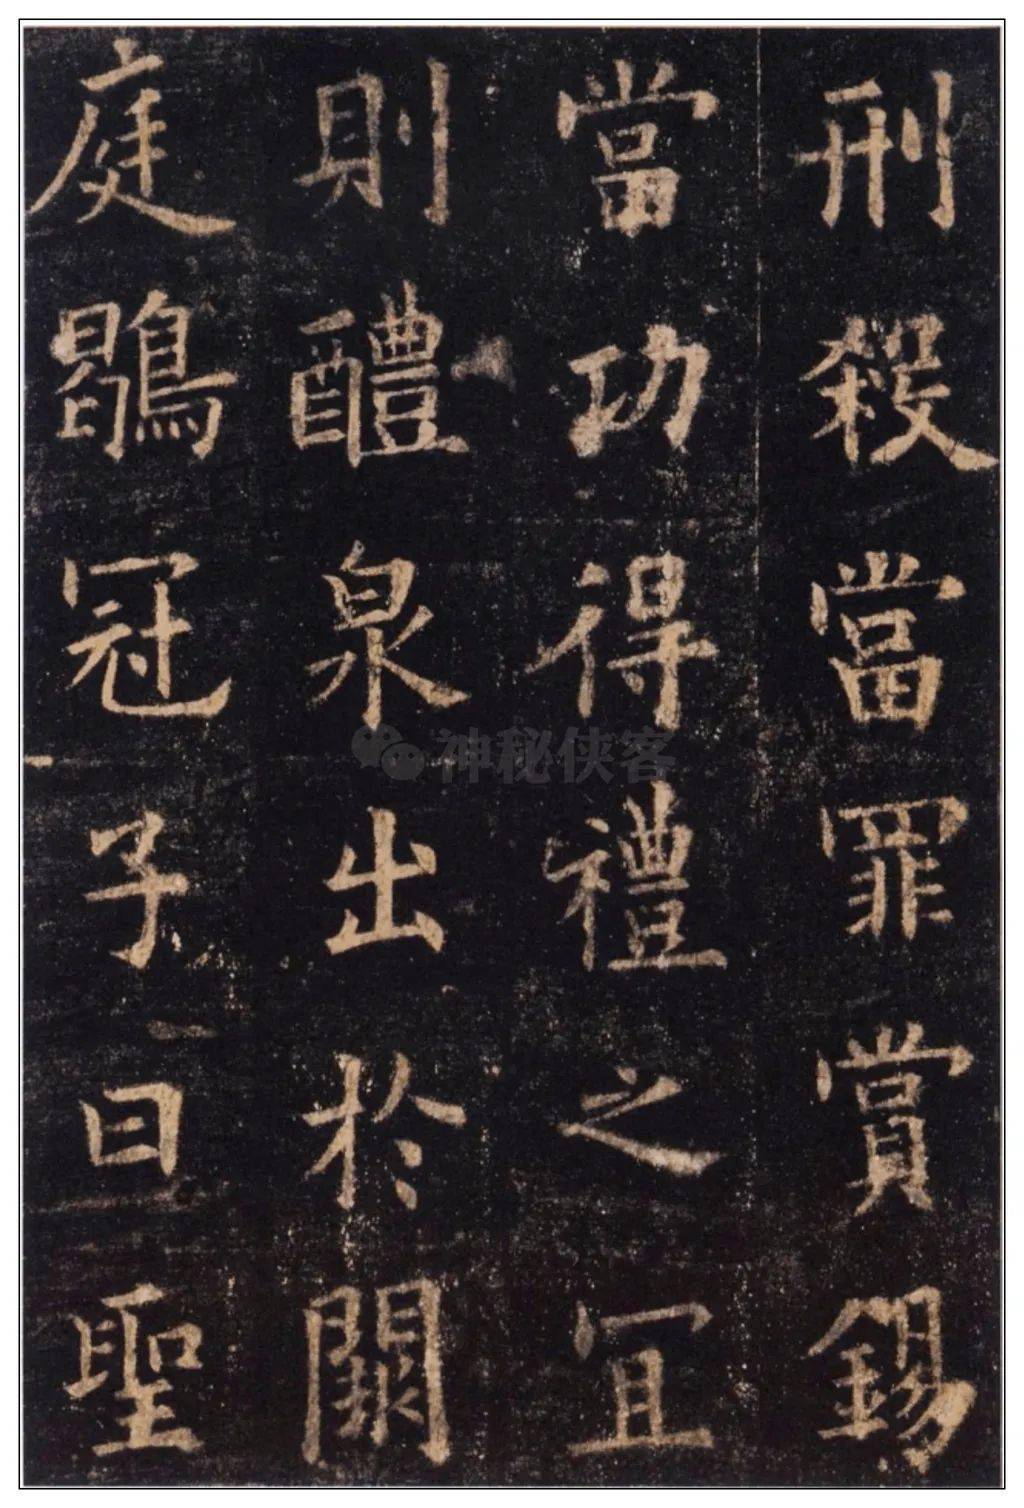 刑殺當罪賞錫
當功得禮之宜
則醴泉出於闕
庭鶡冠子曰聖
神秘侠客